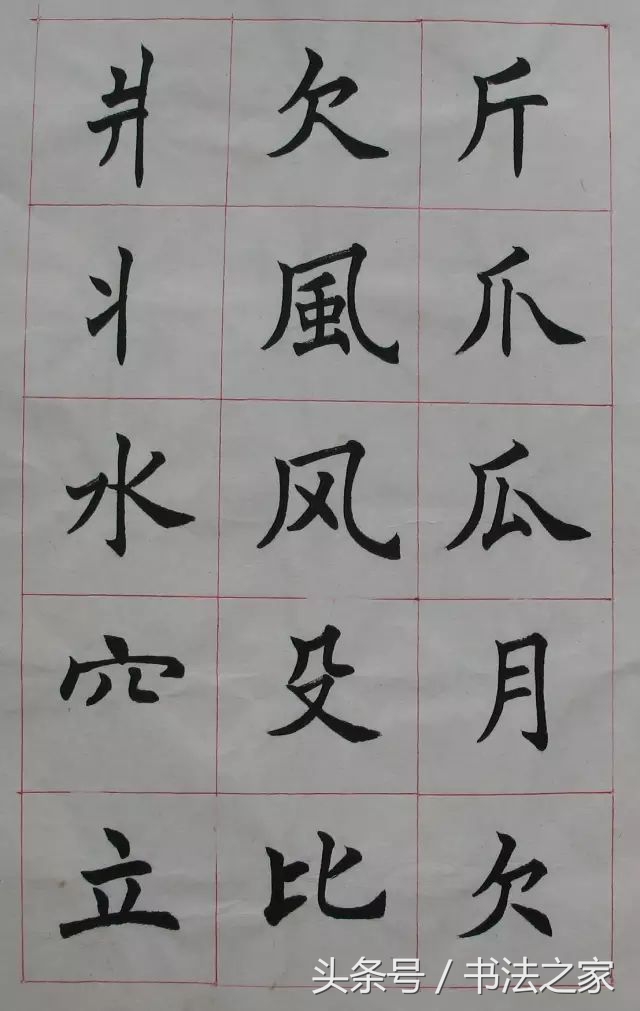 斤爪瓜月欠
欠風风殳比
爿丬水穴立
头条号 / 书法之家